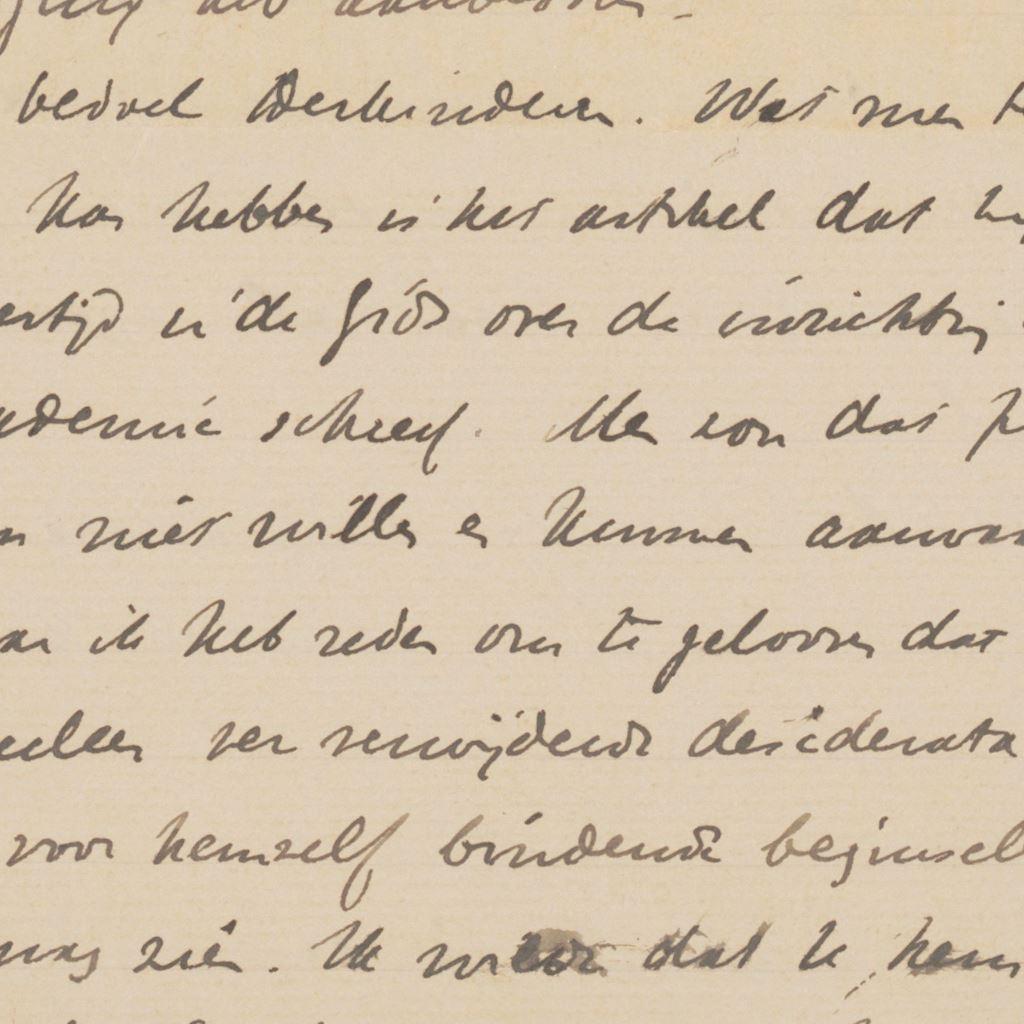 als aanbeveel
bedoel Derkinderen. Wat men te
kan hebben is het artikel dat hij
ertijd in de Gids over de inrichting
ademie schreef. Men kon dat
niet willen en kunnen aanvaar
ar ik heb reden om te gelooven dat
eelen ver verwijderde desiderata
voor hemzelf bindende beginsel
mag zien. Ik wilde dat ik hem